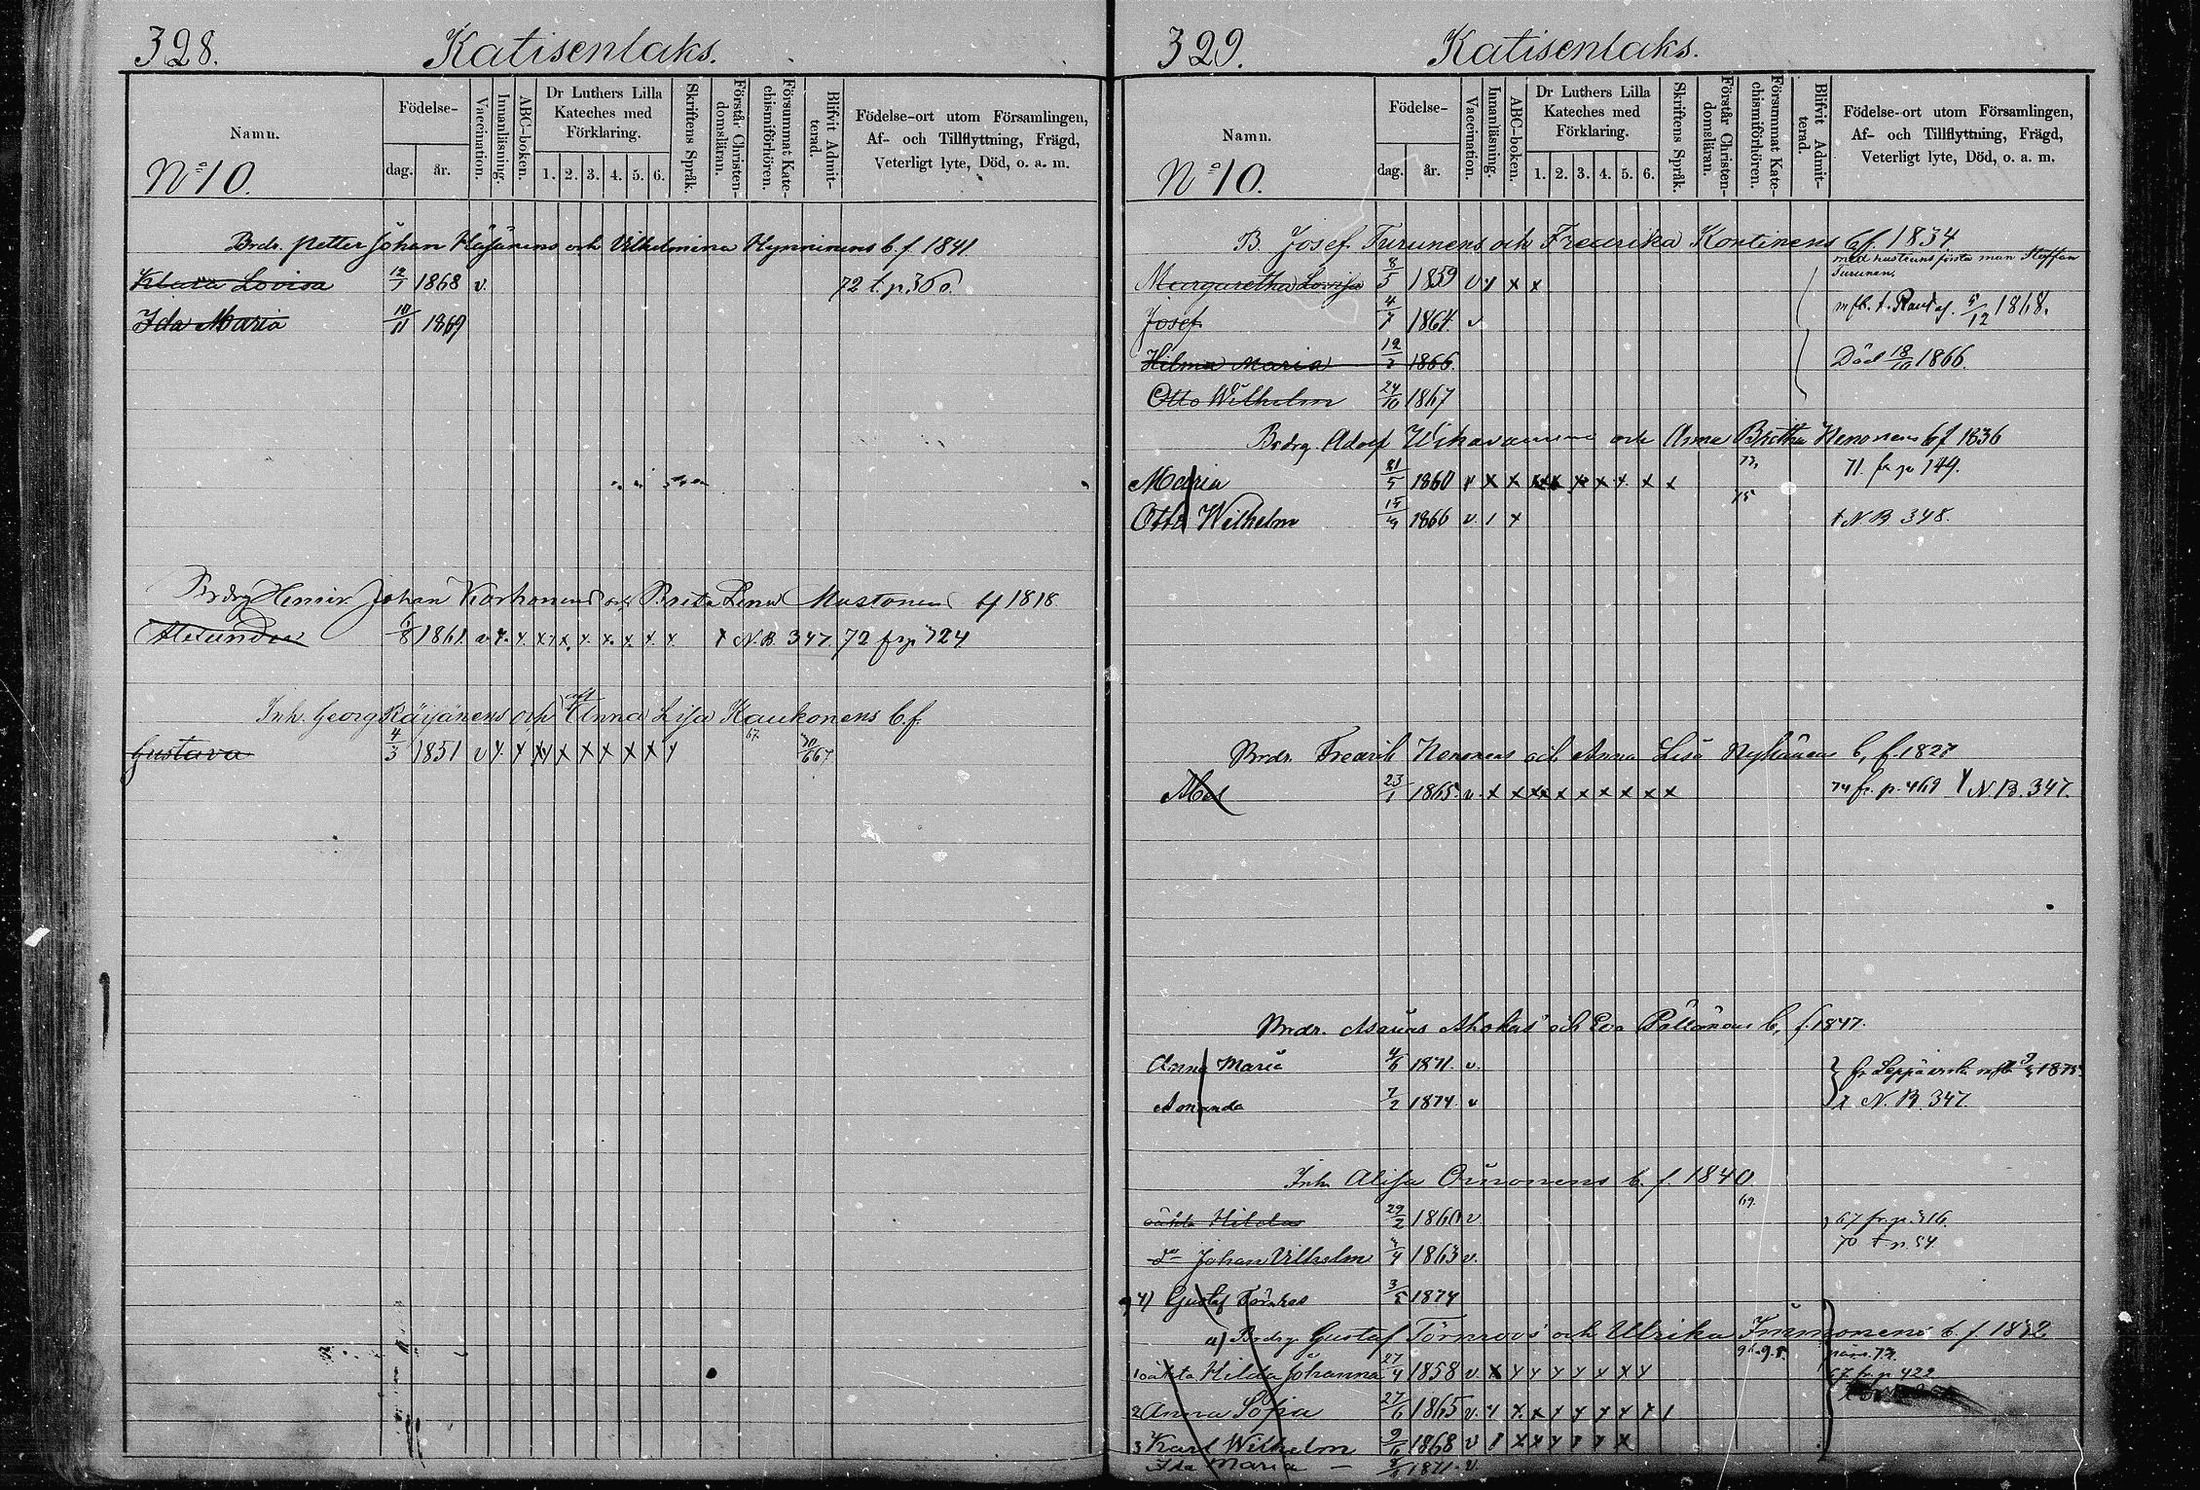 328. Katisenlaks.
Namn.
Födelse-
dag.
år.
Vaccination.
Innanläsning.
ABC-boken.
Dr Luthers Lilla
Kateches med
Förklaring.
1. 2. 3. 4. 5. 6.
Skriftens Språk.
Förstår Christen-
domsläran.
Försummat Kate-
chismiförhören.
Blifvit Admit-
terad.
Födelse-ort utom Församlingen,
Af- och Tillflyttning, Frägd,
Veterligt lyte, Död, o. a. m.
No 10.
Brdr. Petter Johan och Vilhelmina Hynninens b. f. 1841
Klara Lovisa 1868 v. 72 t. p.
Ida Maria 10/11 1869
Johan Korhonens och Brita Lena Mustonens bf 1818
Alexander 1861 N.B. 347. 72 fr p. 724
Inh. Georg Räsänens och Anna Lisa Kaukonens b. f.
Gustava 4/3 1851 v
329. Katisenlaks.
Namn.
Födelse-
dag.
år.
Vaccination.
Innanläsning.
ABC-boken.
Dr Luthers Lilla
Kateches med
Förklaring.
1. 2. 3. 4. 5. 6.
Skriftens Språk.
Förstår Christen-
domsläran.
Försummat Kate-
chismiförhören.
Blifvit Admit-
terad.
Födelse-ort utom Församlingen,
Af- och Tillflyttning, Frägd,
Veterligt lyte, Död, o. a. m.
No 10.
B. Josef Turunens och Fredrika Kontinens bf. 1834
med hustruns första man Staffan
Turunen.
Margaretha Lovisa 8/5 1859 v x x
Josef 4/7 1864 v 5/12 1868.
Hilma Maria 1866. Död 1866.
Otto Wilhelm 24/10 1867
Brdrg. Adolf och Anna Britha Nenonens bf 1836
Maria 21/5 1860 x x 71. fr p 149.
Otto Wilhelm 1866 v. 1 x N.B 348.
Brdr. Fredrik Nenonens och Anna Lisa Nykänens b. f. 1827
Abel 23/1 1865 v. x x 74 fr. p. 469 N.B. 347.
Brdr. och Eva Pöllänens b. f. 1847.
Anna Maria 4/6 1871. v.
Amanda 7/2 1874. v N. B. 347.
Inh. b. f. 1840
oäkta Hilda 29/2 1860 v 67 fr. p. 316.
do Johan Vilhelm 1863 v. 70 t p. 54
4) Gustaf 1874
a) Brdrg. Gustaf Törnroos och Ulrika b. f. 1832
1 oäkta Hilda Johanna 27/4 1858 v. 67 fr. p 422
2 Anna Sofia 27/6 1865 v.
3 Karl Wilhelm 9/6 1868 v
Ida Maria 1871. v.